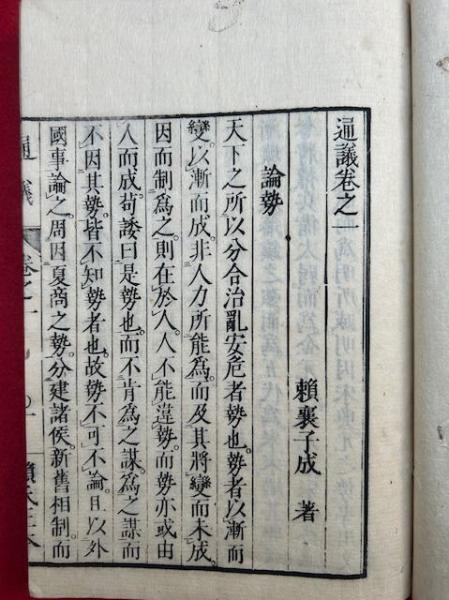 通議卷之一
賴襄子成 著
論勢
天下之所以分合治亂安危者勢也。勢者以漸而
變。以漸而成。非人力所能爲。而及其將變而未成。
因而制爲之。則在於人。人不能違勢。而勢亦或由
人而成。苟諉曰是勢也。而不肯爲之謀。爲之謀而
不因其勢。皆不知勢者也。故勢不可不論。且以外
國事論之。周因夏商之勢。分建諸侯。新舊相制。而
通議 卷之一